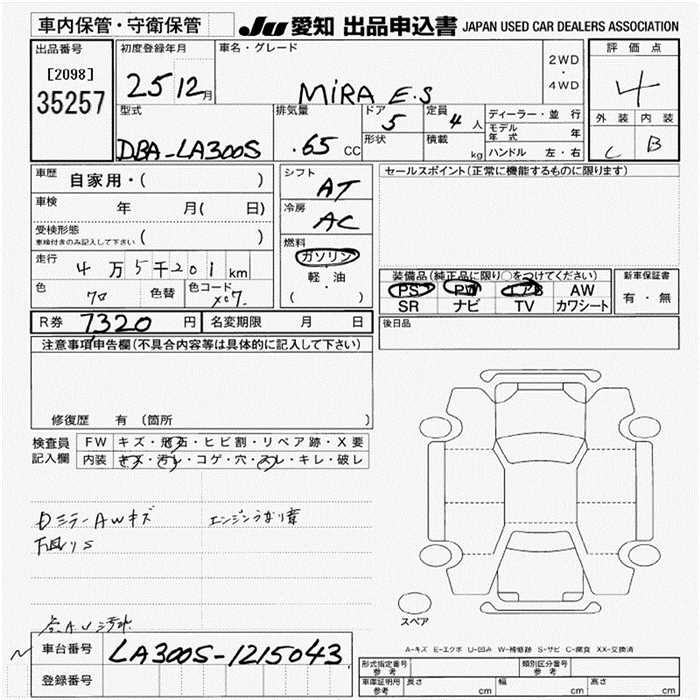 車内保管・守衛保管
JU 愛知 出品申込書 JAPAN USED CAR DEALERS ASSOCIATION
出品番号
[2098]
35257
初度登録年月
25 12月
車名・グレード
MiRA E.S
2WD
・
4WD
評価点
4
外装 内装
C B
型式
DBA-LA300S
排気量
.65 CC
ドア
5
形状
定員
4 人
積載
kg
ディーラー・並行
モデル年式 年
ハンドル 左・右
車歴
自家用・( )
車検
年 月( 日)
受検形態
車検付きのみ記入して下さい ( )
走行
4万5千201km
色
色替
色コード
X07.
シフト
AT
冷房
AC
燃料
ガソリン
軽・油
( )
セールスポイント(正常に機能するものに限ります)
装備品(純正品に限り○をつけてください)
PS PW AB AW
SR ナビ TV カワシート
新車保証書
有・無
後日品
R券 7320 円
名変期限 月 日
注意事項申告欄(不具合内容等は具体的に記入して下さい)
修復歴 有 (箇所
検査員記入欄
FW キズ・飛石・ヒビ割・リペア跡・X要
内装 キズ・汚れ・コゲ・穴・スレ・キレ・破レ
ミラーAWキズ
エンジンうなり音
下回りS
スペア
A-キズ E-エクボ U-凹み W-補修跡 S-サビ C-腐食 XX-交換済
車台番号
LA300S-1215043
登録番号
形式指定番号 参考
類別区分番号 参考
車庫証明用 参考
長さ cm
幅 cm
高さ cm